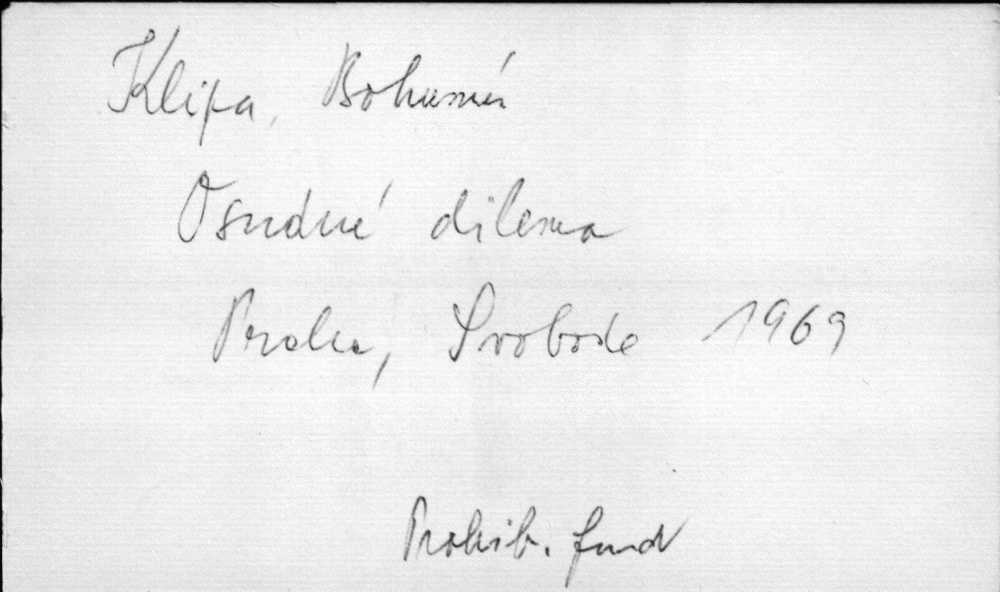 Klipa, Bohumír
Osudné dilema
Praha, Svoboda 1969
Prohib. fond